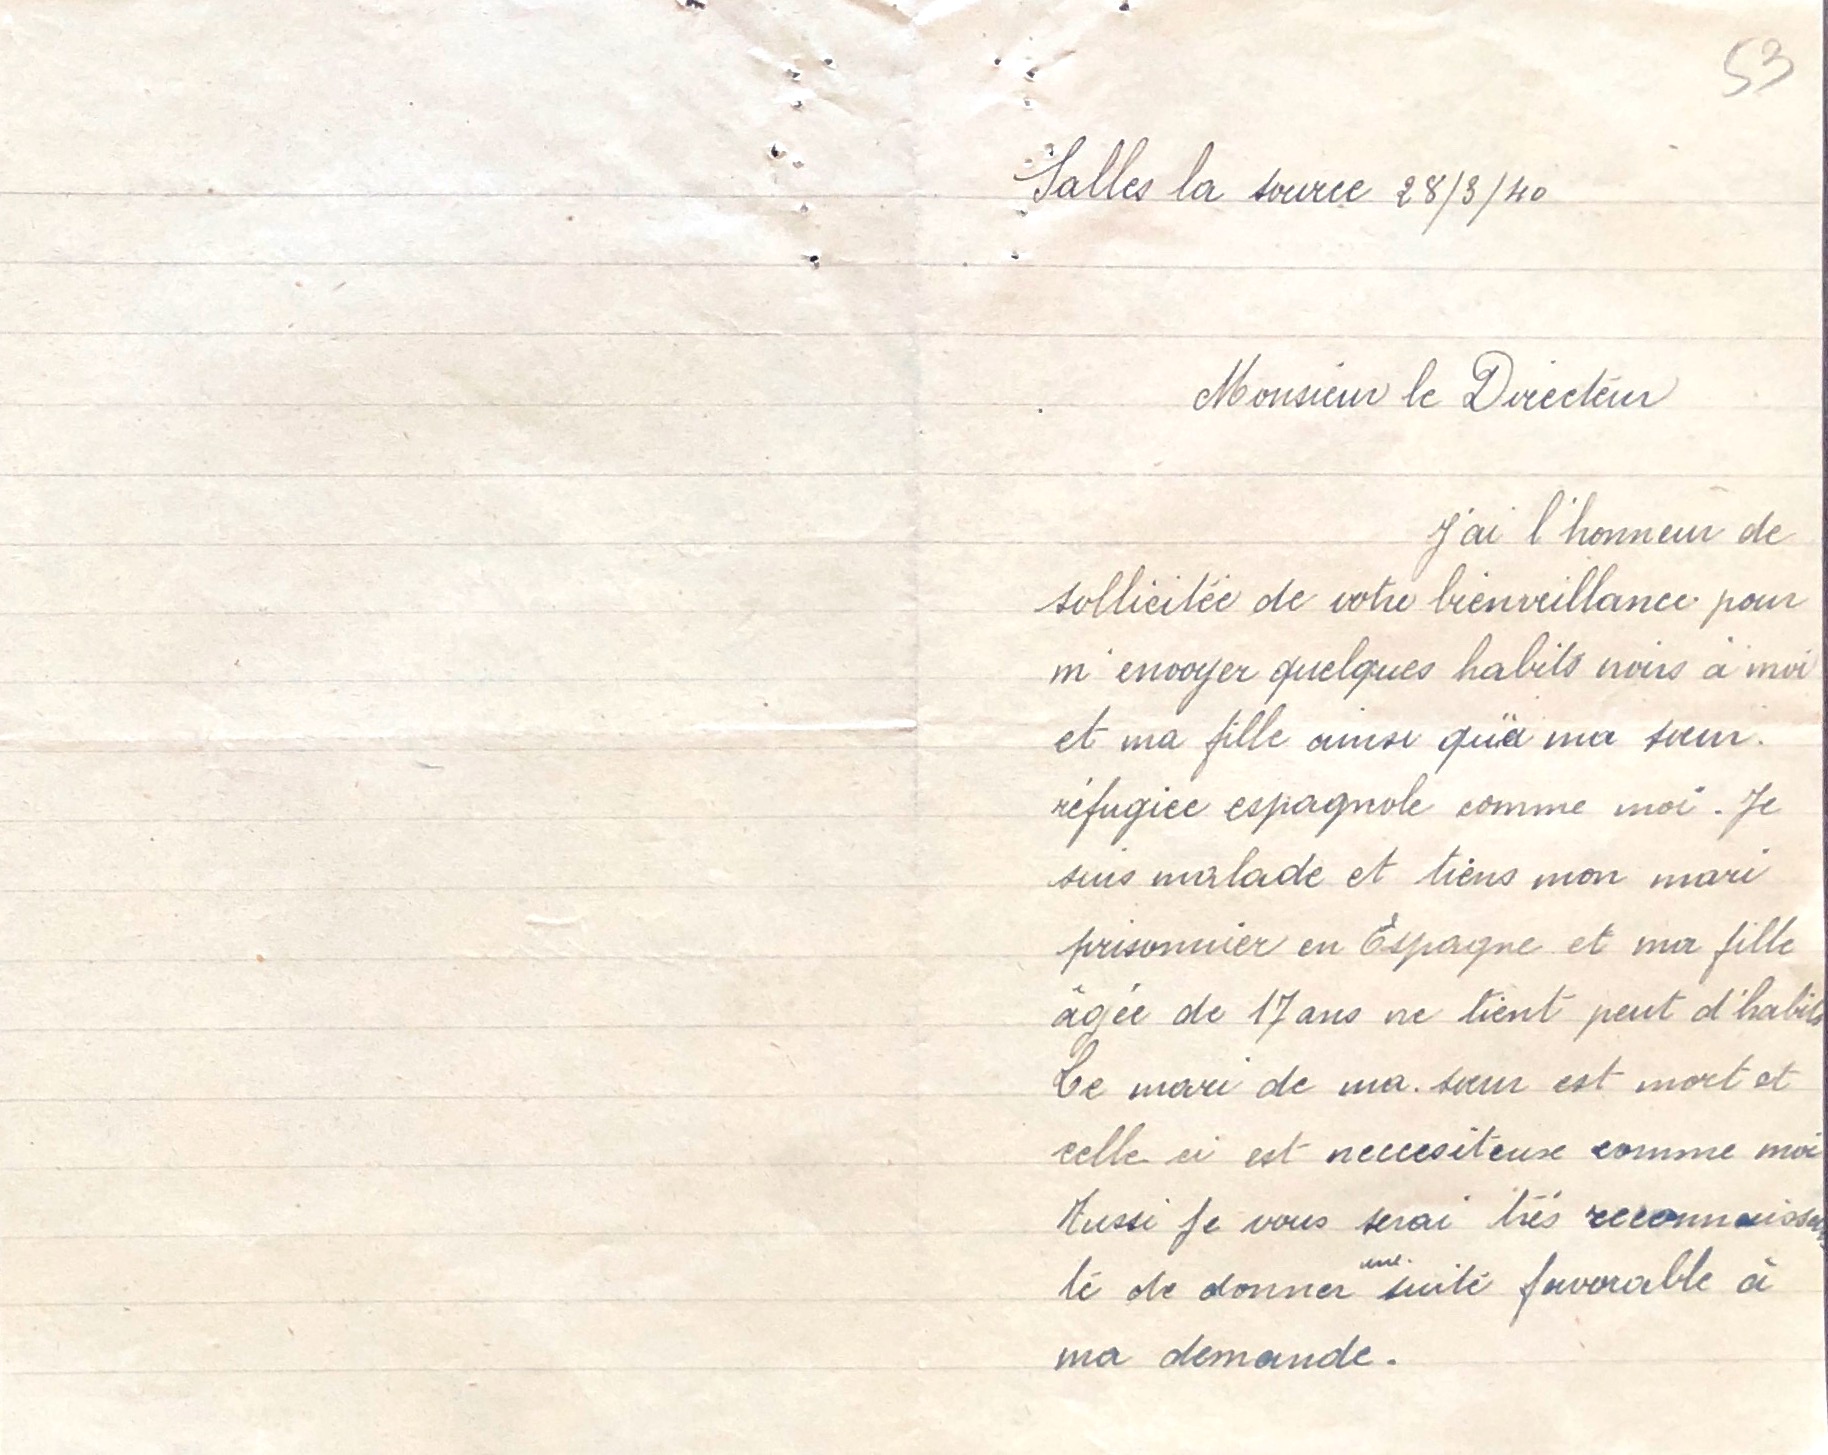 53
Salles la source 28/3/40
Monsieur le Directeur
J'ai l'honneur de
sollicitée de votre bienveillance pour
m'envoyer quelques habits noirs à moi
et ma fille ainsi qu'à ma sœur.
réfugiée espagnole comme moi. Je
suis malade et tiens mon mari
prisonnier en Espagne et ma fille
âgée de 17 ans ne tient peut d'habits
Le mari de ma sœur est mort et
celle ci est neccesiteuse comme moi
Aussi je vous serai très reconnaissan
te de donner une suite favorable à
ma demande.